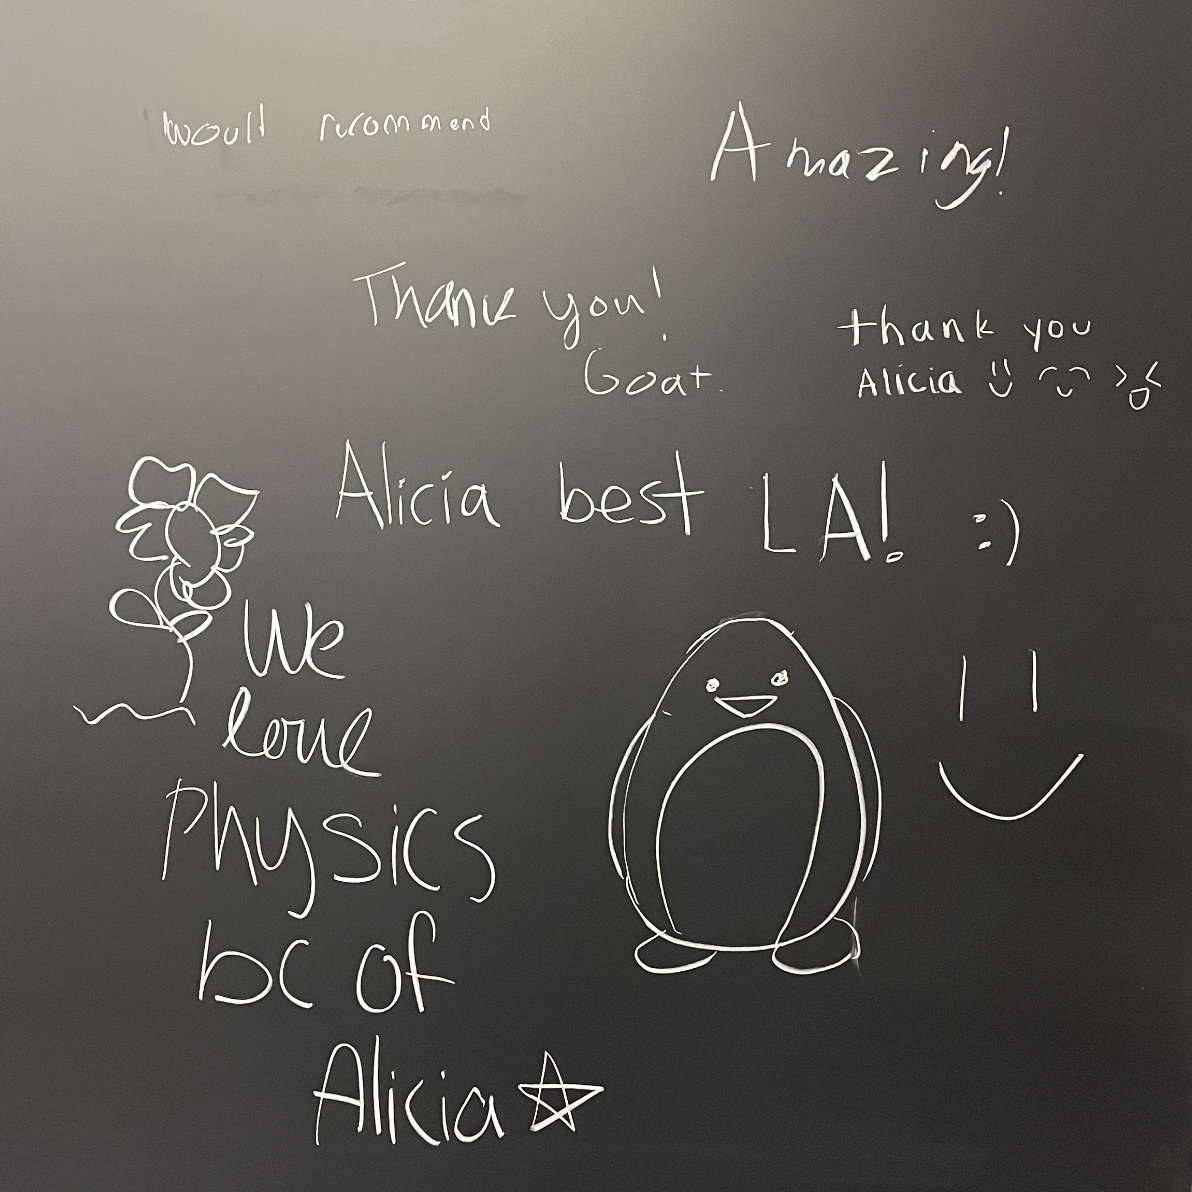 would recommend
Amazing!
Thank you!
Goat.
thank you
Alicia
Alicia best LA! :)
We
love
Physics
bc of
Alicia